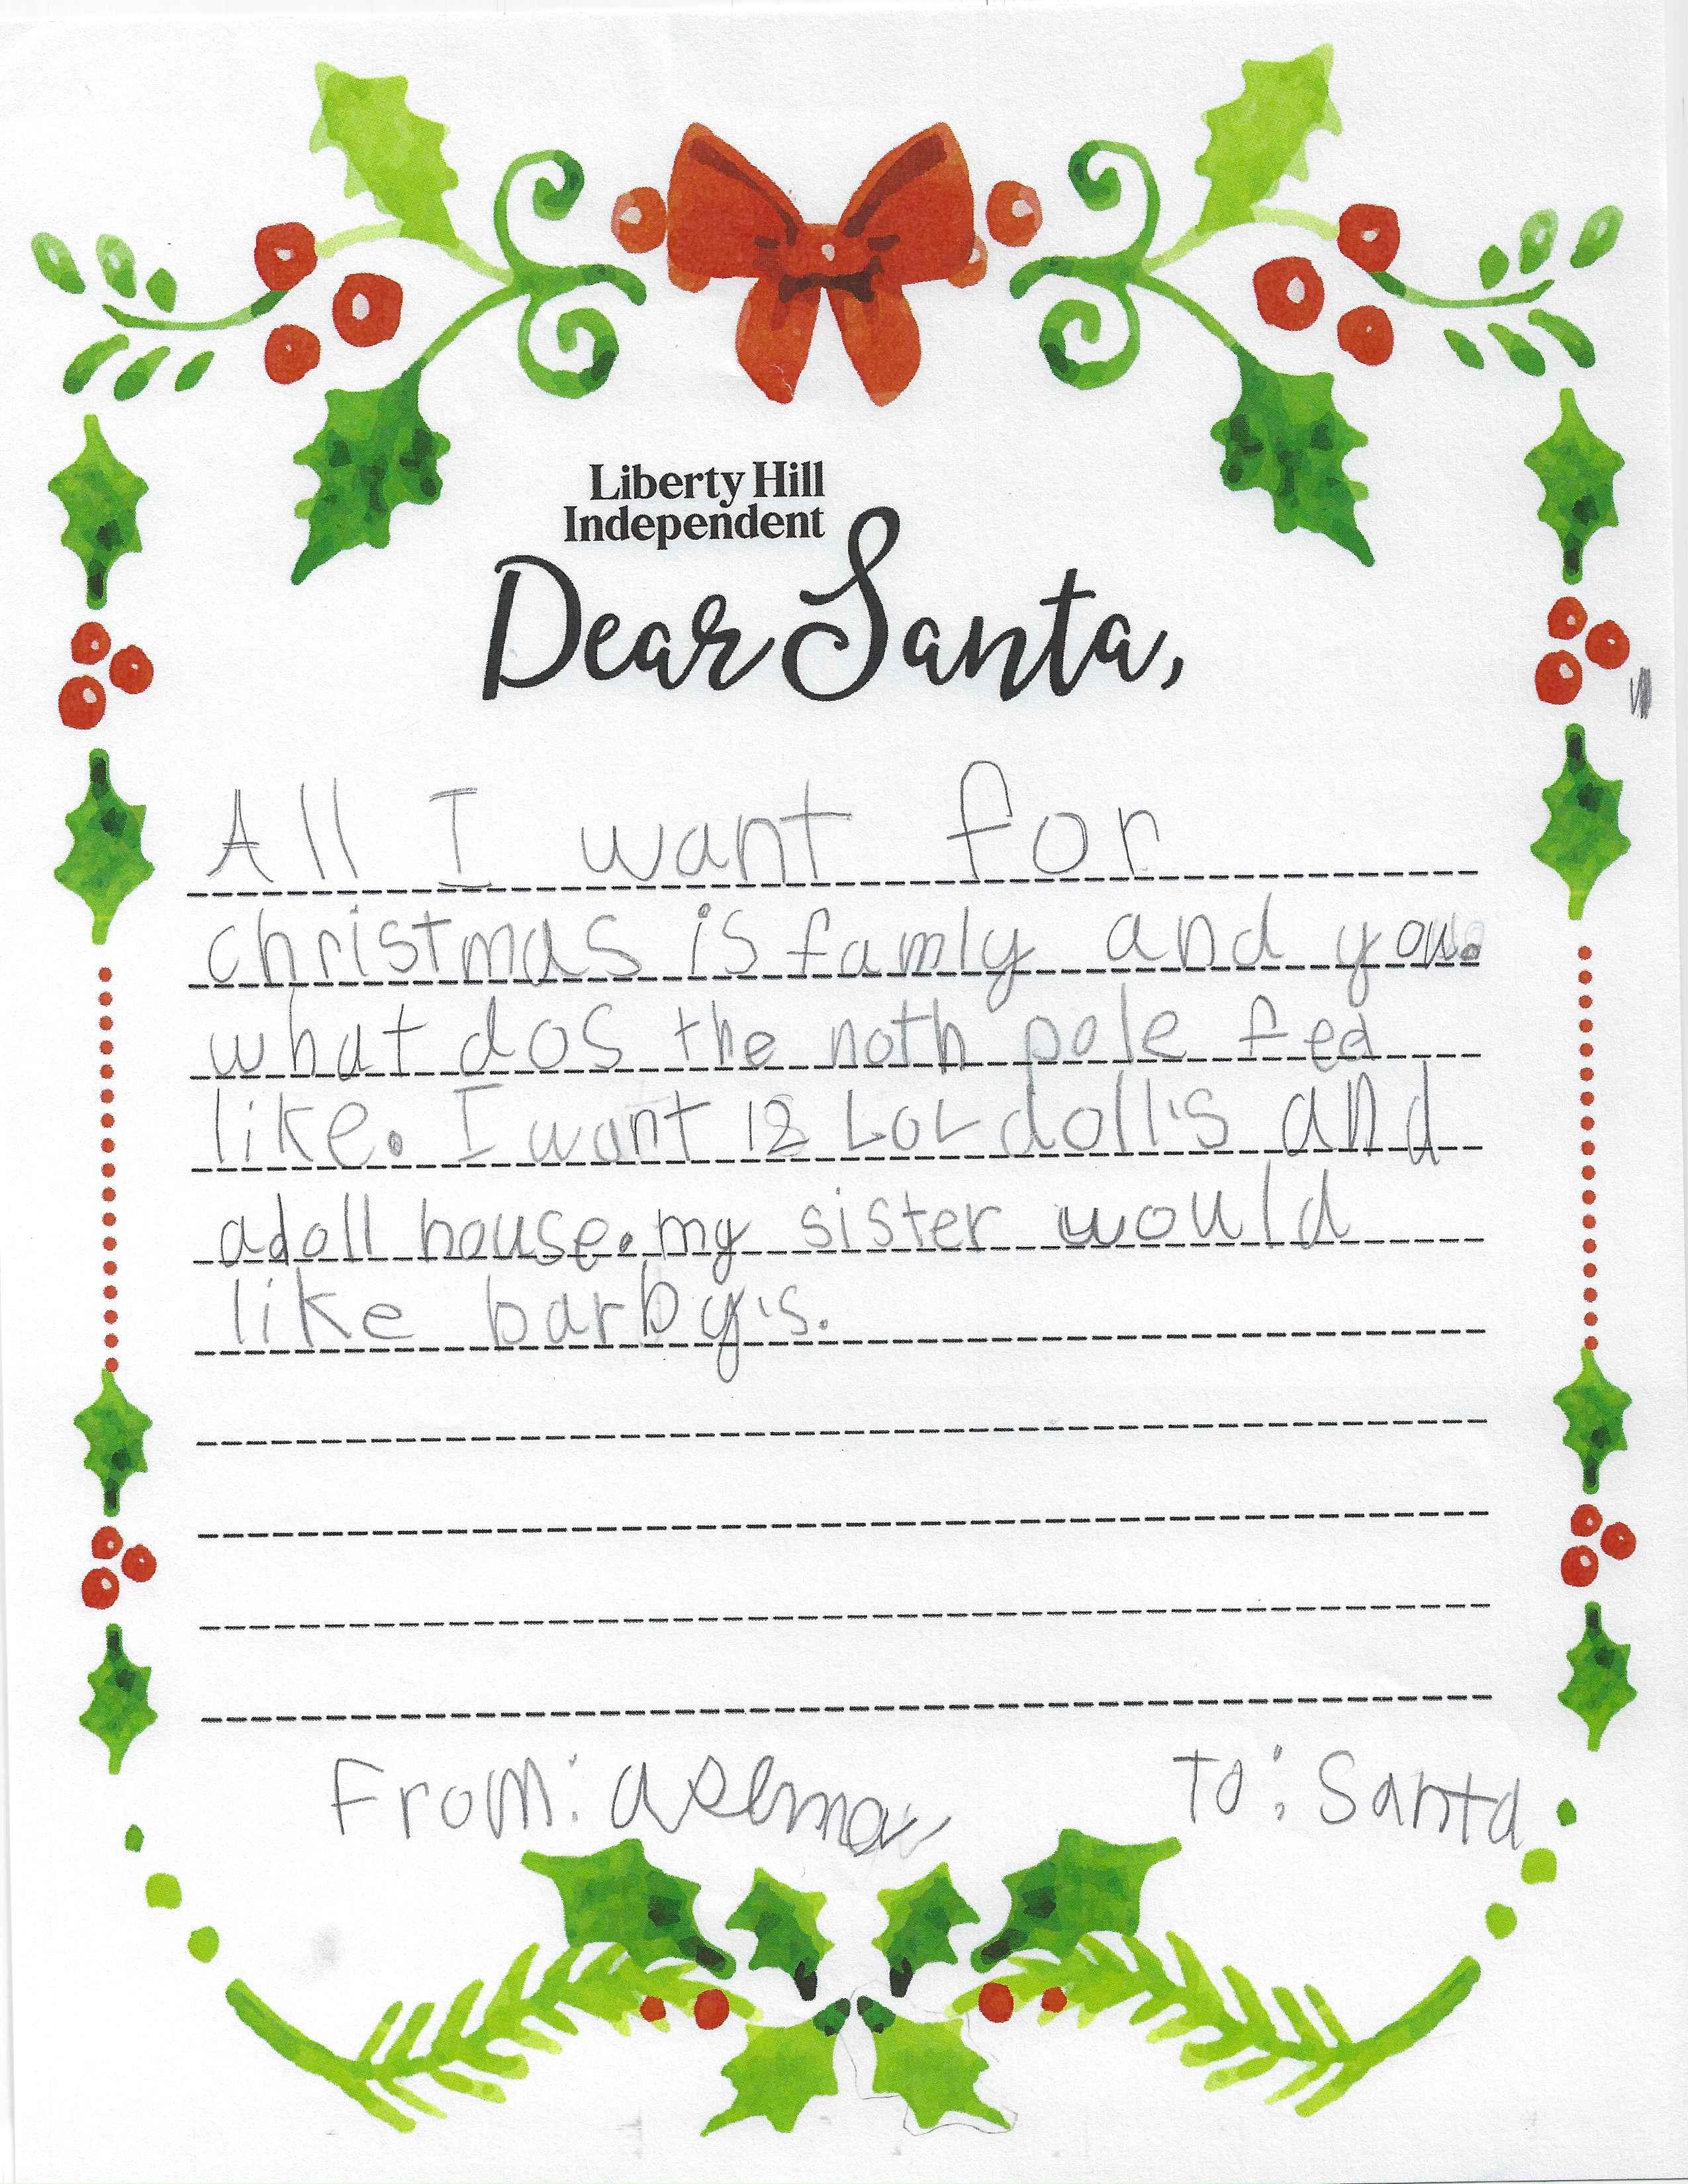 Liberty Hill
Independent
Dear Santa,
All I want for
christmas is famly and you.
what dos the noth pole fed
like. I want 12 LOL doll's and
adoll house. my sister would
like barby's.
From: To: Santa